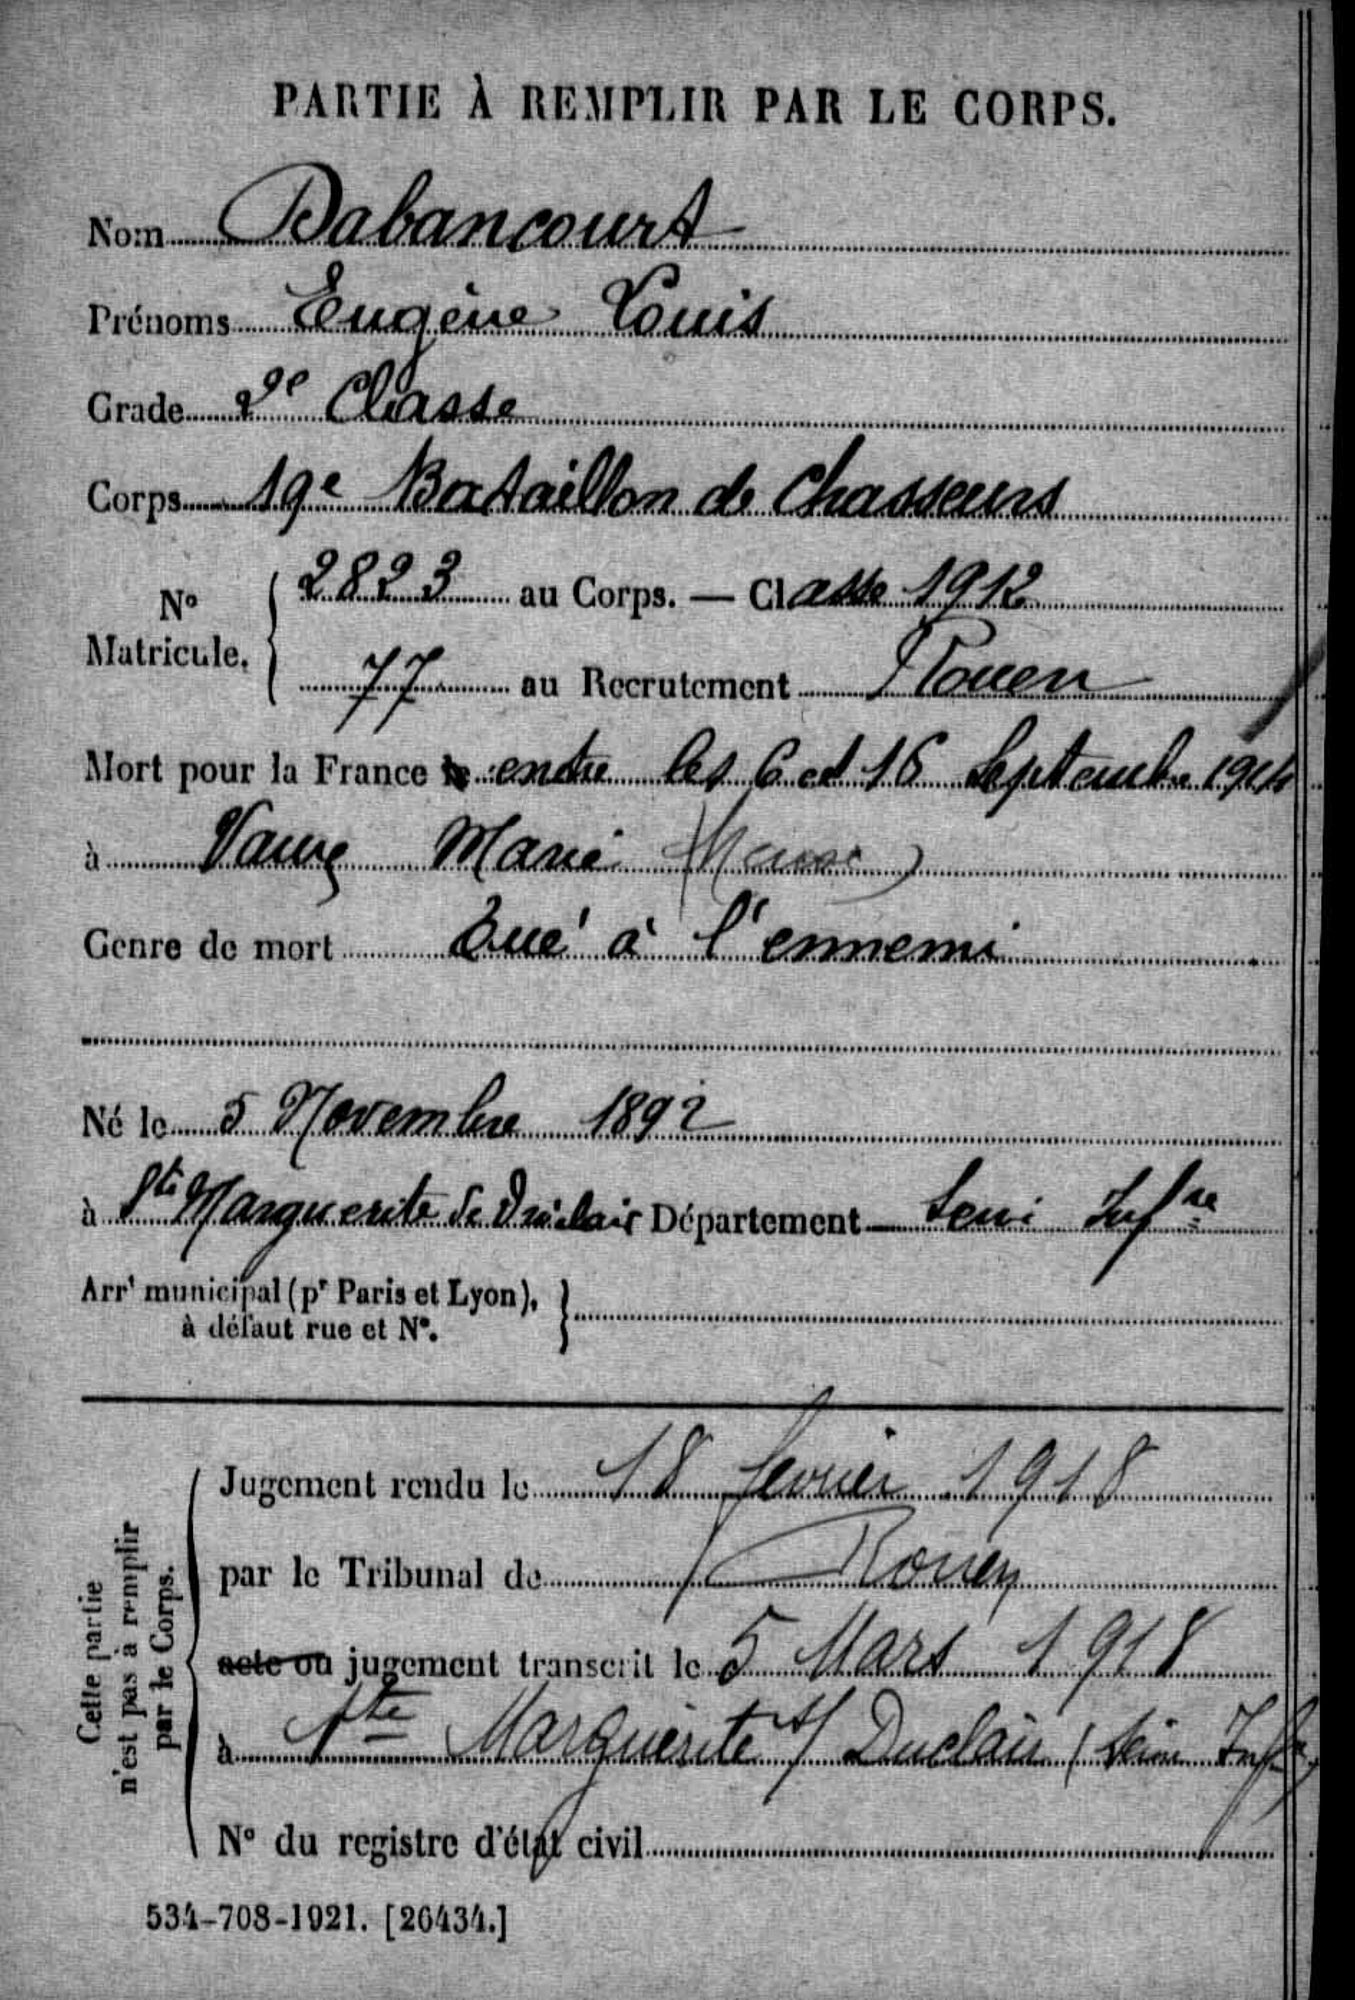 PARTIE À REMPLIR PAR LE CORPS.
Nom Dabancourt
Prénoms Eugène Louis
Grade 2e Classe
Corps 19e Bataillon de Chasseurs
No Matricule. { 2823 au Corps. — Classe 1912
77 au Recrutement Rouen
Mort pour la France le entre les 6 et 16 Septembre 1914
à Vaux Marie (Meuse)
Genre de mort Tué à l'ennemi
Né le 5 Novembre 1892
à Ste Marguerite de Duclair Département Seine Infre
Arrt municipal (pr Paris et Lyon), à défaut rue et No. }
Cette partie n'est pas à remplir par le Corps.
Jugement rendu le 18 fevrier 1918
par le Tribunal de Rouen
acte ou jugement transcrit le 5 Mars 1918
à Ste Marguerite s/ Duclair (Seine Infre)
No du registre d'état civil
534-708-1921. [26434.]